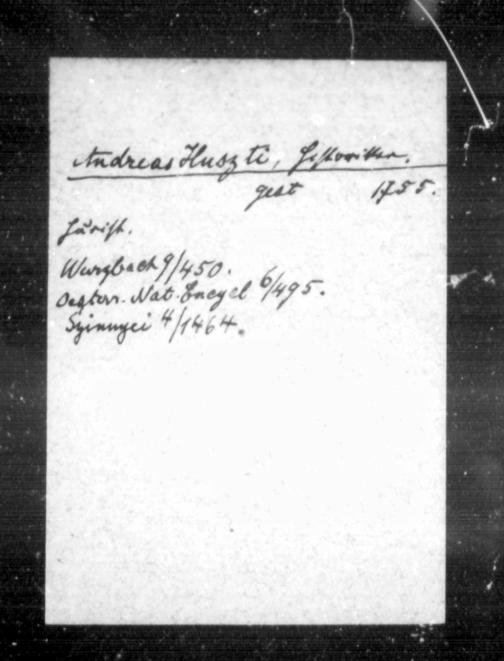 Andreas Huszti, Historiker.
gest 1755.
Jurist.
Wurzbach 9/450.
Oesterr. Nat. Encycl 6/495.
Szinnyei 4/1464.